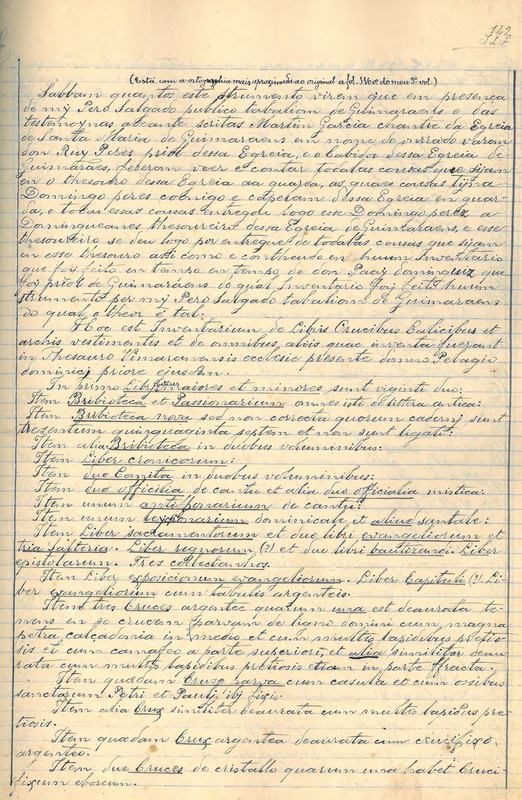 142
(Está com a ortographia mais aproximada ao original a fol. 116 vº do meu 3º vol.)
Sabbam quantos este strumento virem que em presença
de mỹ Pero Salgado publico tabaliom de Guimaraens e das
testemoynas adeante scritas Martim Garcia chantre da Egreia
de Santta Maria de Guimaraens em nome do onrrado varom
don Ruy Peres priol dessa Egreia, e o cabidoo dessa Egreia de
Guimarães, feserom veer e contar todalas cousas que sijam
en o thesouro dessa Egreia aa guarda, as quaes cousas tijna
Domingo peres coonigo e capelam dessa Egreia en guar-
da, e todas essas cousas entregou logo esse Domingo perez a
Domingueanes thesoureiro dessa Egreia de Guimaraens, e esse
thesoureiro se deu logo por entregue de todalas cousas que sijam
en esse thesouro assi como e conthendo en huum Inventario
que foi feito en tempo en tempo de don Paay dominguiz que
foj priol de Guimaraens do qual Inventario foj feito huum
strumento per mỹ Pero Salgado tabaliom de Guimaraens
do qual o theor é tal:
Hoc est Inventarium de Libris Crucibus Calicibus et
archis vestimentis et de omnibus aliis quae inventa fuerant
in Thesauro Vimaranensis ecclesie presente domno Pelagio
dominicj priore ejusdem.
In primo Libri maiores et minores sunt viginti duo:
Item Bribioteca et Passionarium omnes iste de littera antica:
Item Bribioteca nova sed non correcta quorum caderni sunt
tresentium quinquaginta septem et non sunt ligati:
Item alia Bribioteca in duobus voluminibus:
Item Liber cronicorum:
Item duo Comita in duobus voluminibus:
Item duo officilia de cantu et alia duo officialia mistica:
Item unum antiphonarium de cantu:
Item unum dominicale et aliud santale:
Item Liber sacramentorum et duo libri evangeliorum et
tria salteria. Liber regnorum (?) et duo libri bautizandi. Liber
epistolarum. Tres collectanêos.
Item Liber exposicionum evangeliorum. Liber Capituli (?). Li-
ber evangeliorum cum tabulis argenteis.
Item tres Cruces argentee quarum una est deaurata te-
nens en pe crucem parvam de ligno domini cum magna
petra calçadonia in medio et cum multis lapidibus pretio-
sis et cum camafeo a parte superiori, et alia similiter deau-
rata cum multis lapidibus pretiosis etiam in parte fracta.
Item quedam Cruxe parva cum casula et cum ossibus
sanctorum Petri et Paulj ibj fixis.
Item alia Crux similiter deaurata cum multis lapidibus pre-
tiosis.
Item quedam Crux argentea deaurata cum crucifixo
argenteo.
Item, due Cruces de cristallo quarum una habet Cruci-
fixum eboreum.